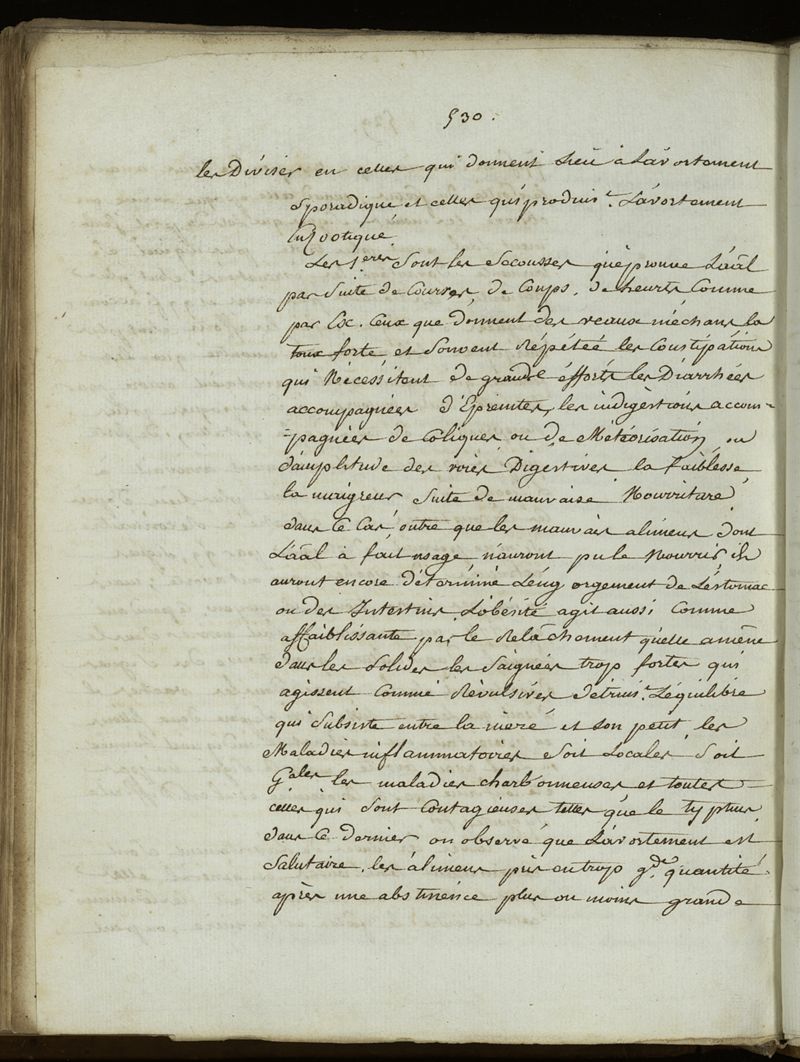 530.
les Diviser en celles qui donnent Lieu à L'avortement
Sporadique et celles qui produist. L'avortement
Enzootique.
Les 1eres Sont les Secousses qu'éprouve L'aāl
par Suite de Courses, de Coups, de heurts Comme
par Ex. Ceux que donnent des veaux méchans la
toux forte, et Souvent Répétée les Constipations
qui Nécessitent de grands éfforts les Diarrhées
accompagnées d'Epreintes, les indigestions accom-
-pagnées de Coliques ou de Météorisation, ou
d'amplitude des voies Digestives la faiblesse,
la maigreur Suite de mauvaise Nourriture,
dans Ce Cas, outre que les mauvais alimens dont
L'aāl à fait usage n'auront pu le Nourrir, ils
auront encore déterminé L'eng orgement de L'éstomac
ou des Intestins. L'obésité agit aussi Comme
affaiblissante par le Relâchement qu'elle amène
dans les Solides les Saignées trop fortes qui
agissent Comme Révulsives détruist. L'équilibre
qui Subsiste entre la mere et son petit, les
Maladies inflammatoires Soit Locales Soit
Gales les maladies charbonneuses et toutes
celles qui Sont Contagieuses telles que le typhus,
dans Ce dernier on observe que L'avortement est
Salutaire. les alimens pris en trop gde. quantité
après une abstinence plus ou moins grande